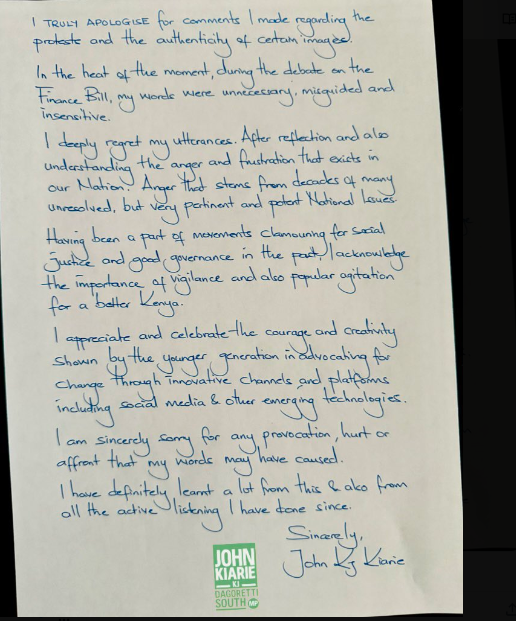 I TRULY APOLOGISE for comments I made regarding the
protests and the authenticity of certain images.
In the heat of the moment, during the debate on the
Finance Bill, my words were unnecessary, misguided and
insensitive.
I deeply regret my utterances. After reflection and also
understanding the anger and frustration that exists in
our Nation. Anger that stems from decades of many
unresolved, but very pertinent and potent National Issues.
Having been a part of movements clamouring for social
justice and good governance in the past, I acknowledge
the importance of vigilance and also popular agitation
for a better Kenya.
I appreciate and celebrate the courage and creativity
shown by the younger generation in advocating for
change through innovative channels and platforms
including social media & other emerging technologies.
I am sincerely sorry for any provocation, hurt or
affront that my words may have caused.
I have definitely learnt a lot from this & also from
all the active listening I have done since.
Sincerely,
John KJ Kiarie
JOHN
KIARIE
KJ
DAGORETTI
SOUTH MP